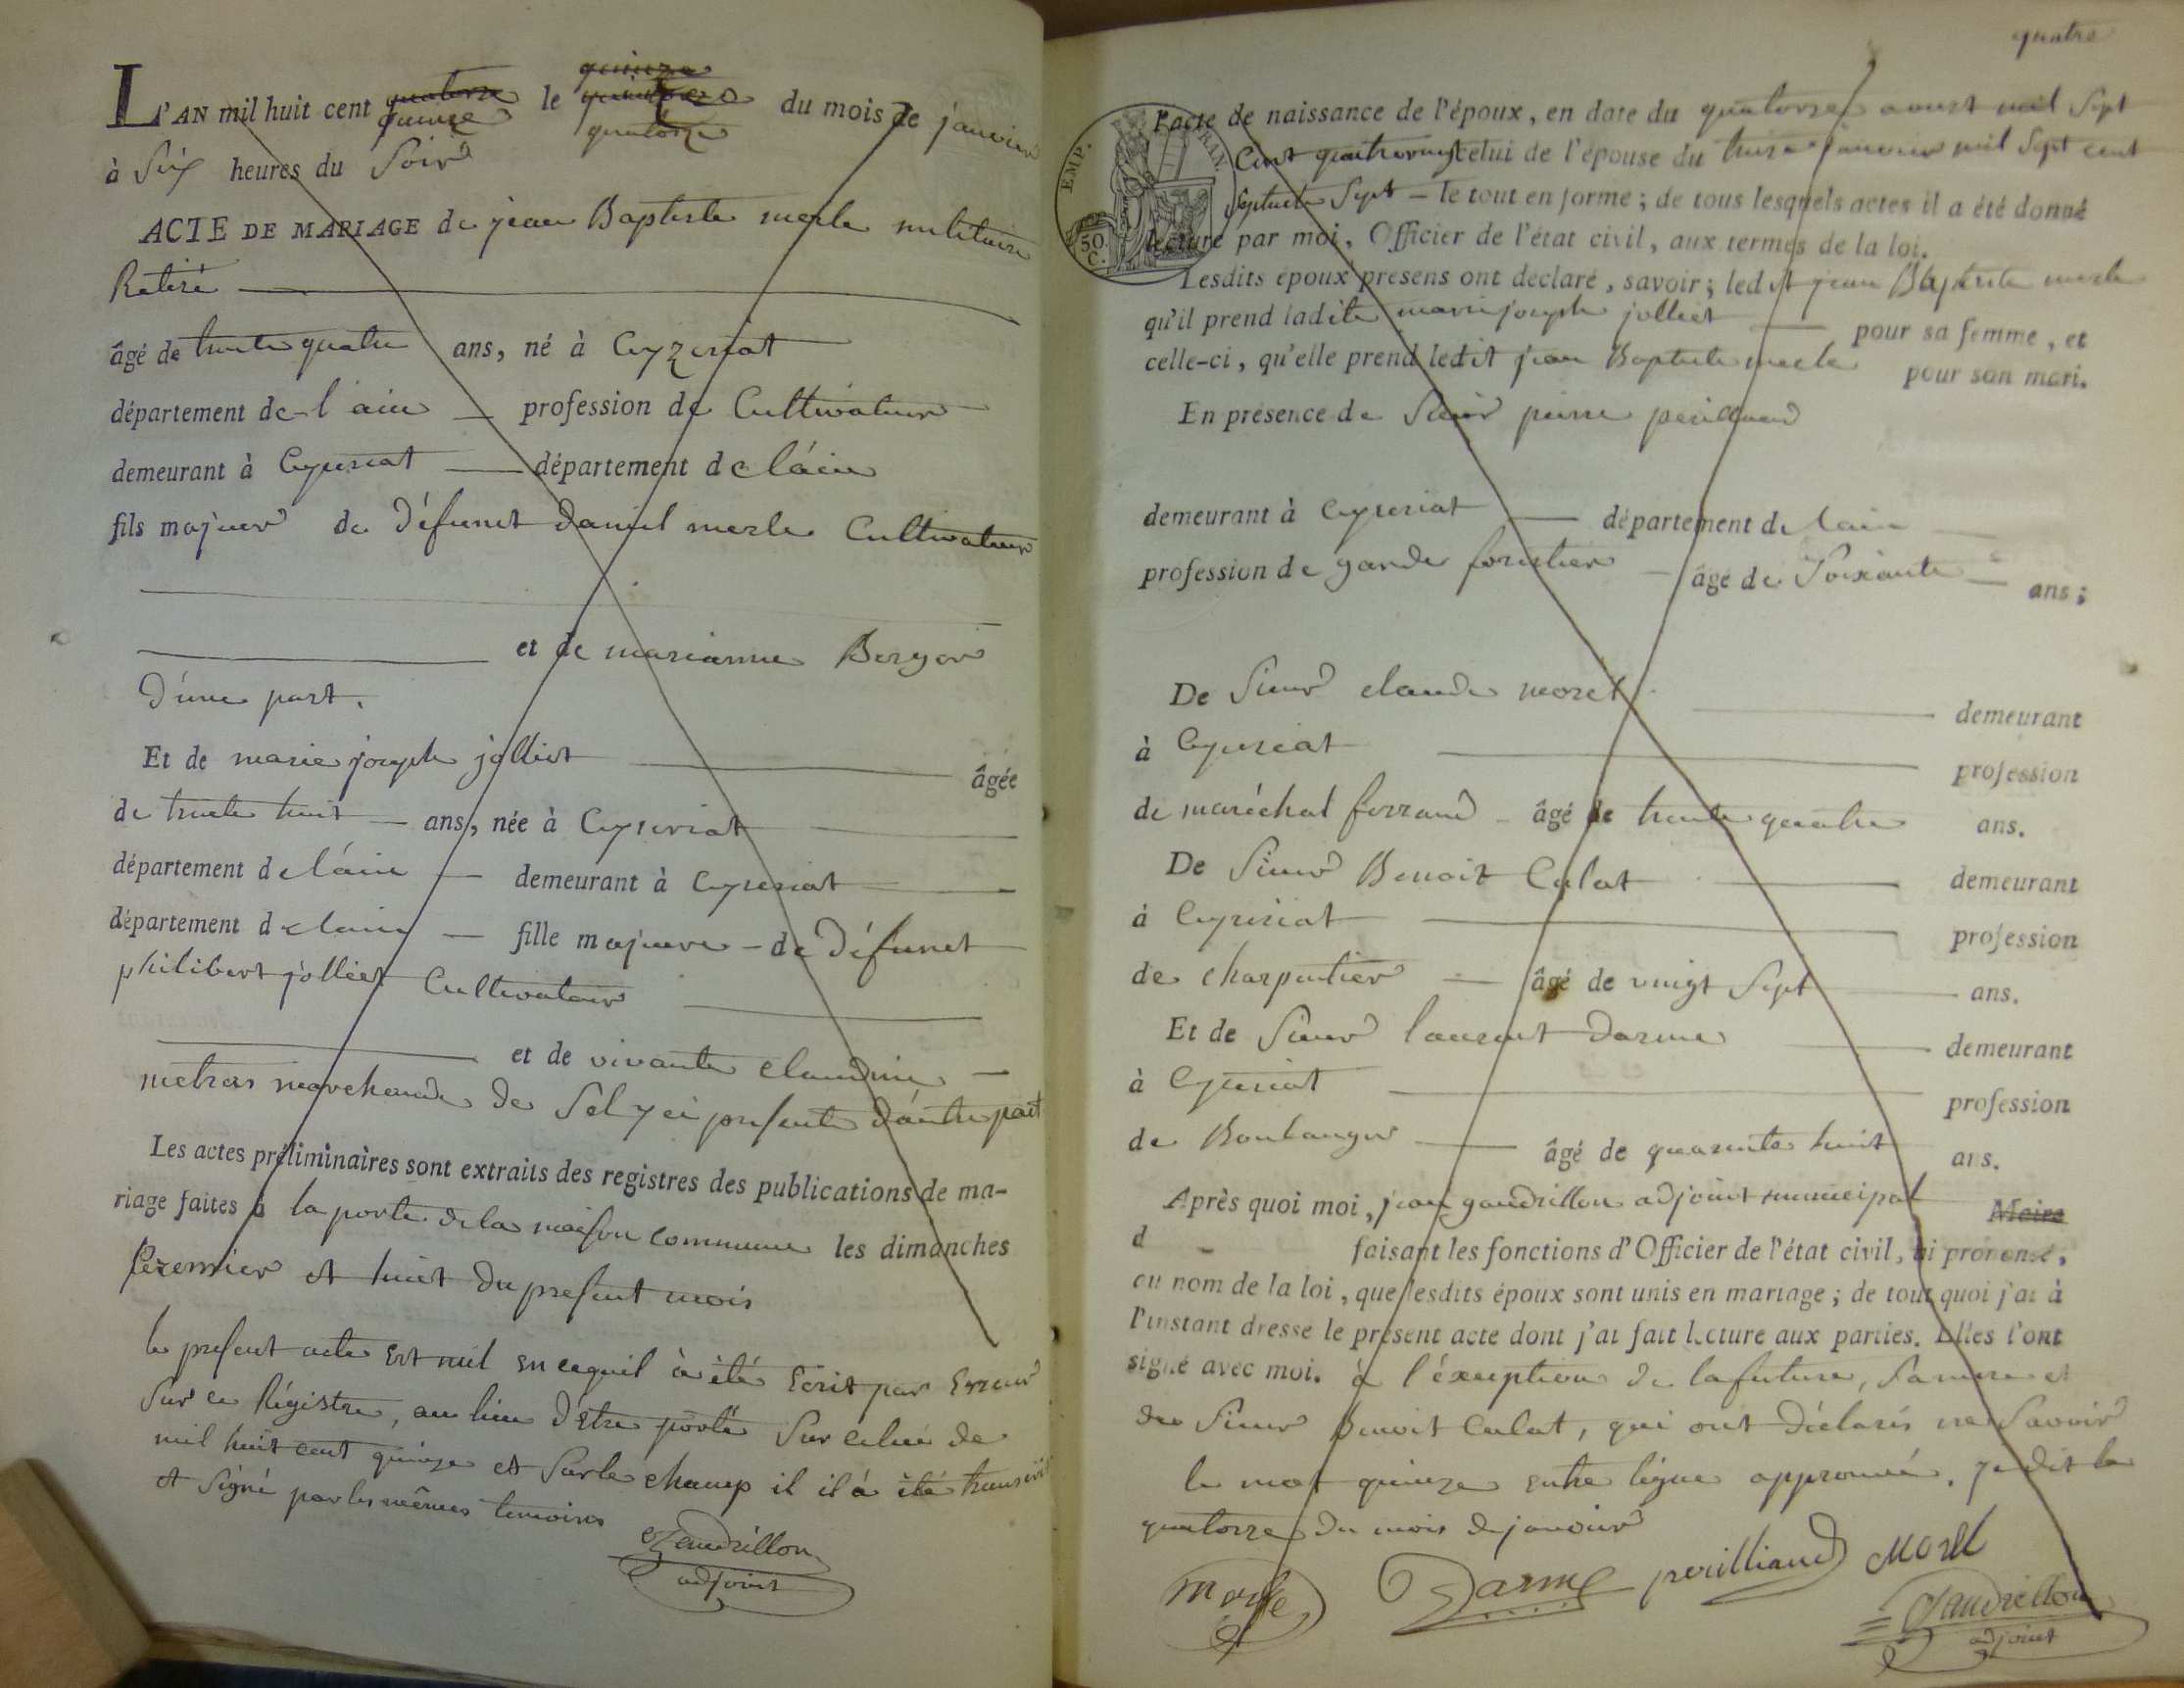 L'AN mil huit cent quatorze quinze le quinze quatorze du mois de janvier
à Six heures du Soir
ACTE DE MARIAGE de jean Baptiste merle militaire
Retiré
âgé de trente quatre ans, né à Ceyzeriat
département de l'ain profession de Cultivateur
demeurant à Ceyzeriat département de l'ain
fils majeur de Défunct Daniel merle Cultivateur
et de marianne Berger
D'une part.
Et de marie joseph jolliet âgée
de trente huit ans, née à Ceyzeriat
département de l'ain demeurant à Ceyzeriat
département de l'ain fille majeure de Défunct
philibert jolliet Cultivateur
et de vivante claudine
metras marchande de Sel y ci presente D'autre part
Les actes préliminaires sont extraits des registres des publications de ma-
riage faites à la porte de la maison commune les dimanches
premier et huit du present mois
le present acte est nul en cequil à été Ecrit par Erreur
Sur ce Régistre, au lieu D'être porté Sur celui de
mil huit cent quinze et Surle champ il il à été transcrit
et Signé par les mêmes temoins
Gandrillon
adjoint
quatre
EMP. FRAN.
50 C.
l'acte de naissance de l'époux, en date du quatorze aoust mil Sept
Cent quatrevingt celui de l'épouse du treize janvier mil Sept cent
Septante Sept le tout en forme ; de tous lesquels actes il a été donné
lecture par moi, Officier de l'état civil, aux termes de la loi.
Lesdits époux présens ont déclaré, savoir ; ledit jean Baptiste merle
qu'il prend ladite marie joseph jolliet pour sa femme, et
celle-ci, qu'elle prend ledit jean Baptiste merle pour son mari.
En présence de Sieur pierre peuilliand
demeurant à Ceyzeriat département de l'ain
profession de garde forestier âgé de Soixante ans ;
De Sieur claude morel demeurant
à Ceyzeriat profession
de maréchal ferrand âgé de trente quatre ans.
De Sieur Benoit Culat demeurant
à Ceyzeriat profession
de charpentier âgé de vingt Sept ans.
Et de Sieur laurent Darme demeurant
à Ceyzeriat profession
de Boulanger âgé de quarante huit ans.
Après quoi moi, jean gandrillon adjoint municipal Maire
d faisant les fonctions d'Officier de l'état civil, ai prononcé,
au nom de la loi, que lesdits époux sont unis en mariage ; de tout quoi j'ai à
l'instant dressé le présent acte dont j'ai fait lecture aux parties. Elles l'ont
signé avec moi. à l'éxception de la future, Sa mere et
du Sieur Benoit Culat, qui ont Déclarés ne Savoir
le mot quinze entre ligne approuvé. je dit le
quatorze du mois de janvier
Merle Darme peuilliand Morel
Gandrillon
adjoint